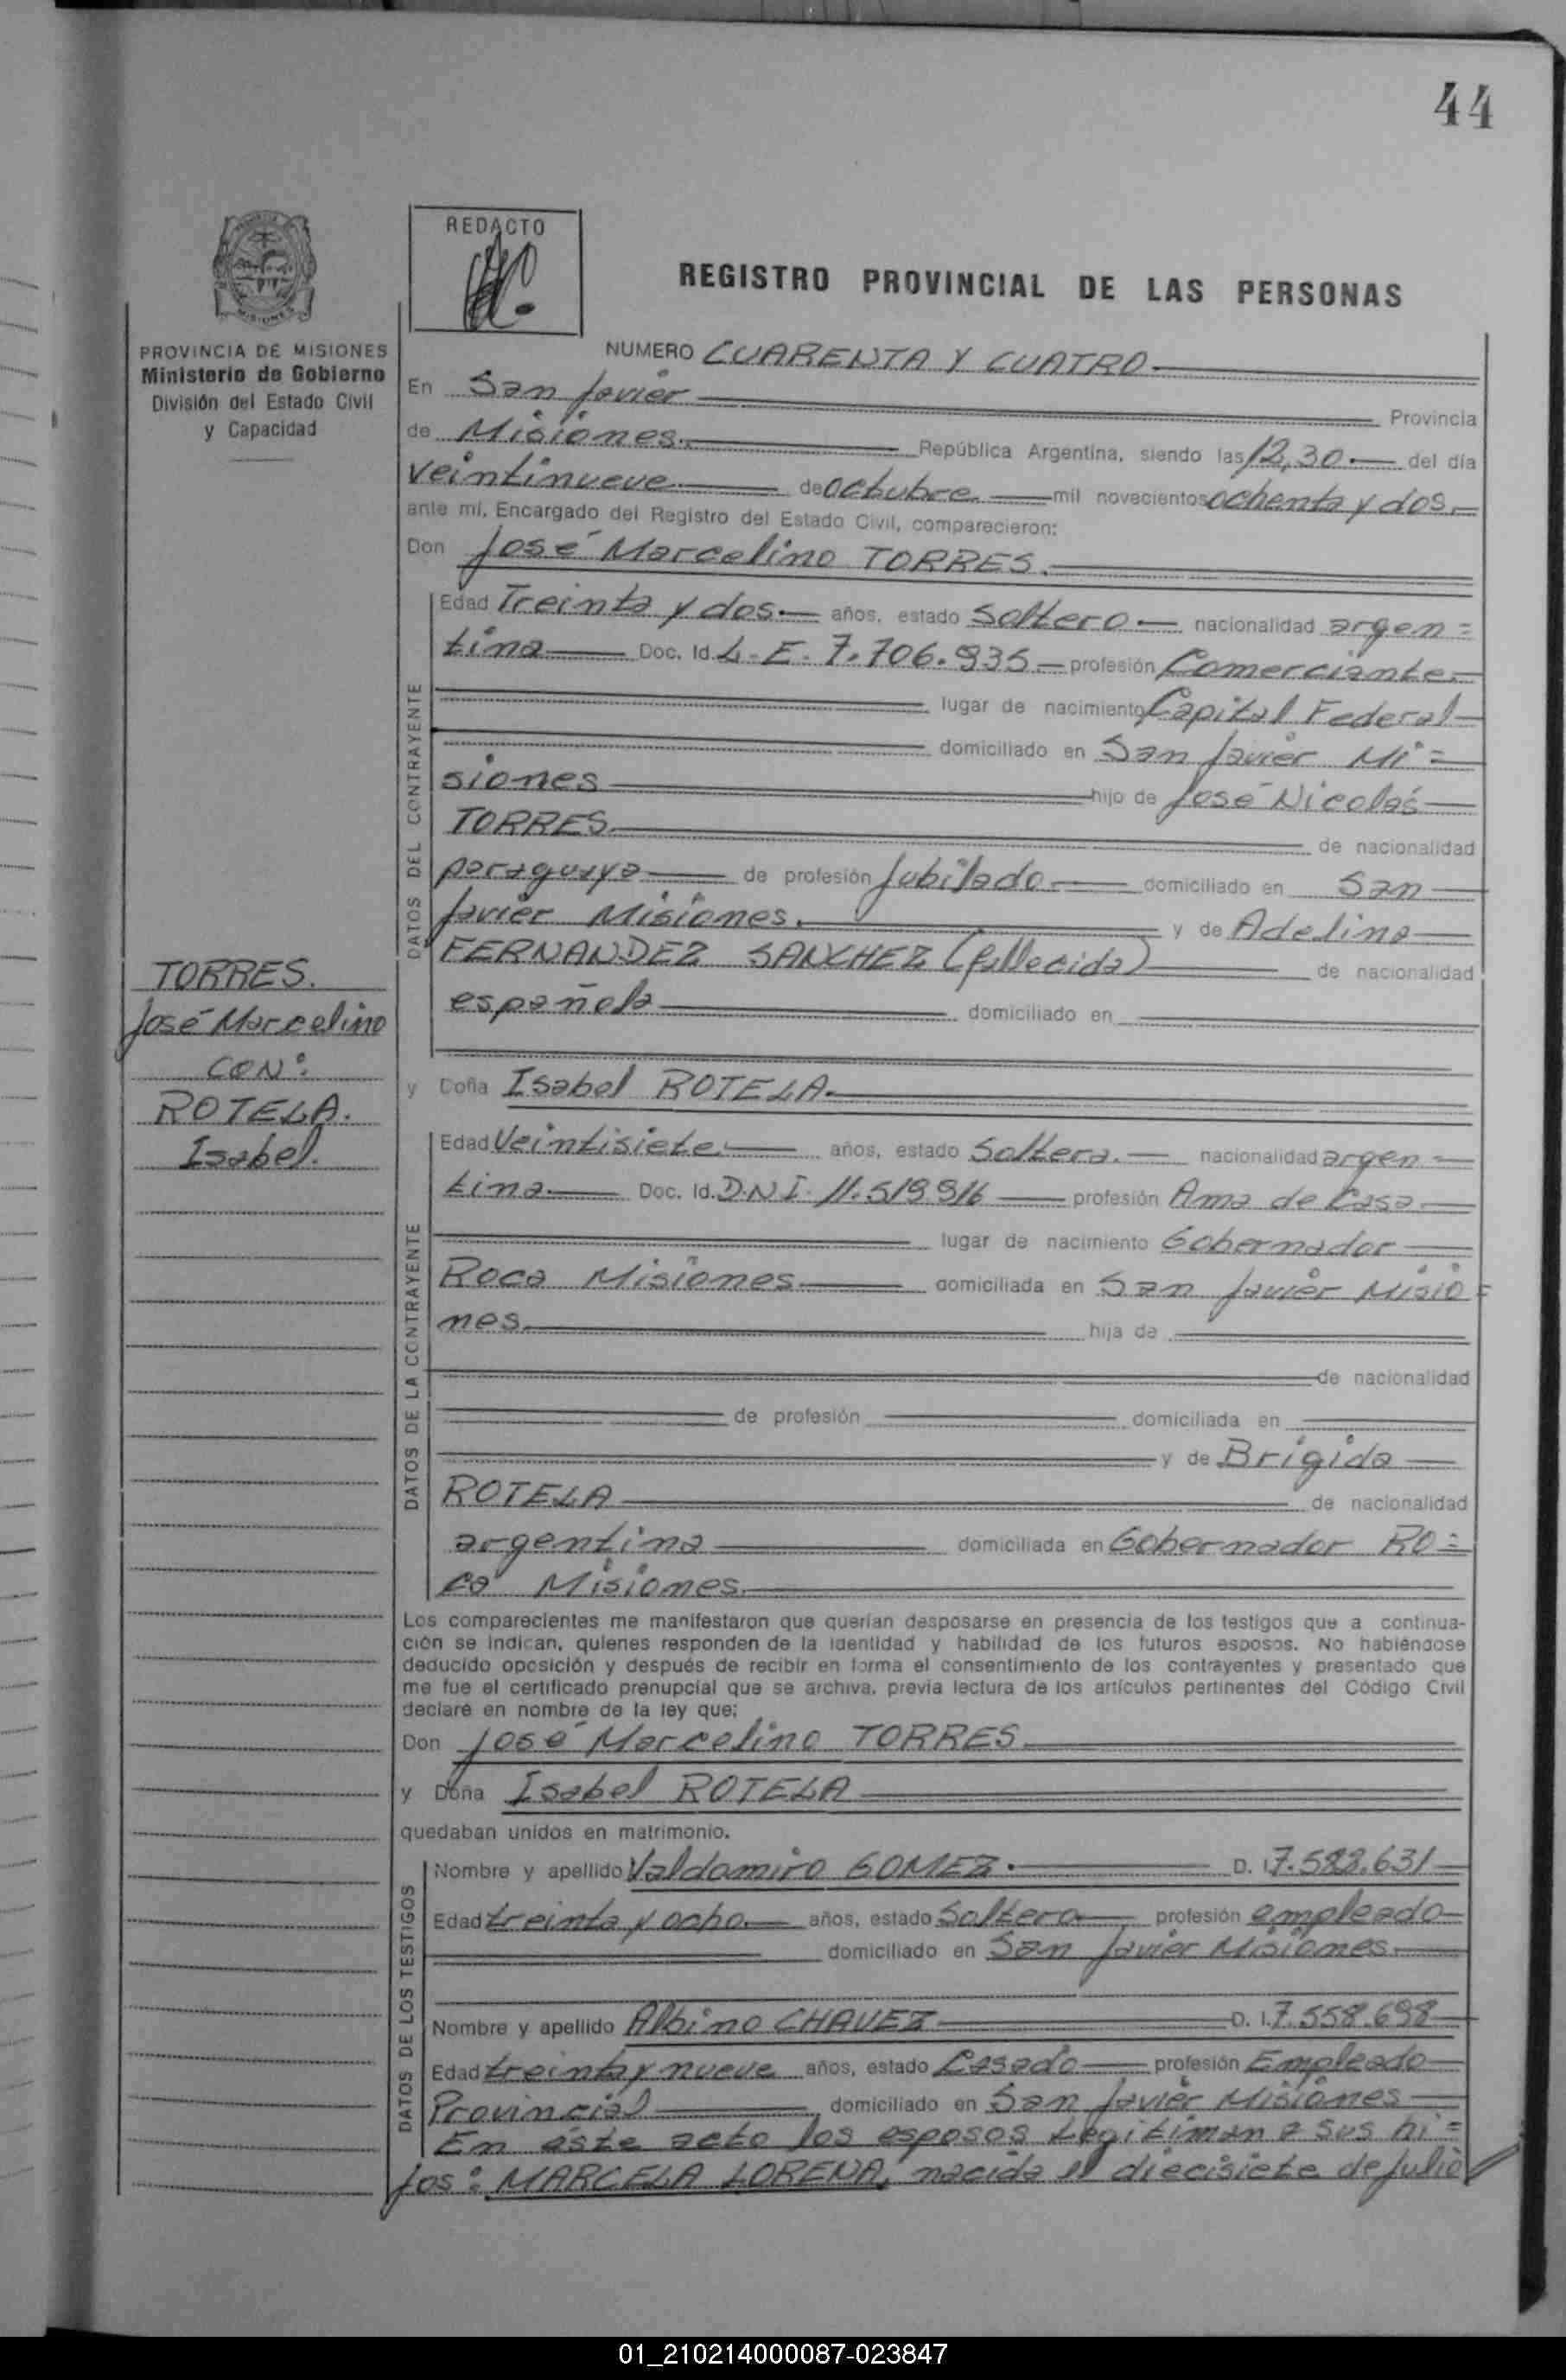 44
REDACTO
REGISTRO PROVINCIAL DE LAS PERSONAS
PROVINCIA DE MISIONES
Ministerio de Gobierno
División del Estado Civil
y Capacidad
NUMERO CUARENTA Y CUATRO
En San Javier Provincia
de Misiones. República Argentina, siendo las 12,30. del día
veintinueve de octubre mil novecientos ochenta y dos.
ante mí, Encargado del Registro del Estado Civil, comparecieron:
Don José Marcelino TORRES.
Edad Treinta y dos. años, estado Soltero nacionalidad argen=
tina Doc. Id. L.E. 7.706.935 profesión Comerciante.
lugar de nacimiento Capital Federal
domiciliado en San Javier Mi=
siones hijo de José Nicolás
TORRES de nacionalidad
paraguaya de profesión Jubilado domiciliado en San
Javier Misiones. y de Adelina
FERNANDEZ SANCHEZ (fallecida) de nacionalidad
española domiciliado en
DATOS DEL CONTRAYENTE
TORRES.
José Marcelino
CON:
ROTELA.
Isabel.
y Doña Isabel ROTELA.
Edad Veintisiete años, estado Soltera. nacionalidad argen=
tina Doc. Id. D.N.I. 11.519.916 profesión Ama de Casa
lugar de nacimiento Gobernador
Roca Misiones domiciliada en San Javier Misio=
nes. hija de
de nacionalidad
de profesión domiciliada en
y de Brígida
ROTELA de nacionalidad
argentina domiciliada en Gobernador Ro=
ca Misiones.
DATOS DE LA CONTRAYENTE
Los comparecientes me manifestaron que querían desposarse en presencia de los testigos que a continua-
ción se indican, quienes responden de la identidad y habilidad de los futuros esposos. No habiéndose
deducido oposición y después de recibir en forma el consentimiento de los contrayentes y presentado que
me fue el certificado prenupcial que se archiva, previa lectura de los artículos pertinentes del Código Civil
declaré en nombre de la ley que:
Don José Marcelino TORRES.
y Doña Isabel ROTELA
quedaban unidos en matrimonio.
Nombre y apellido Valdomiro GOMEZ. D. I. 7.583.631
Edad treinta y ocho. años, estado Soltero profesión empleado
domiciliado en San Javier Misiones.
Nombre y apellido Albino CHAVEZ D. I. 7.558.698
Edad treinta y nueve años, estado Casado profesión Empleado
Provincial domiciliado en San Javier Misiones
DATOS DE LOS TESTIGOS
En éste acto los esposos Legitiman a sus hi=
jos: MARCELA LORENA, nacida el diecisiete de Julio
01_210214000087-023847